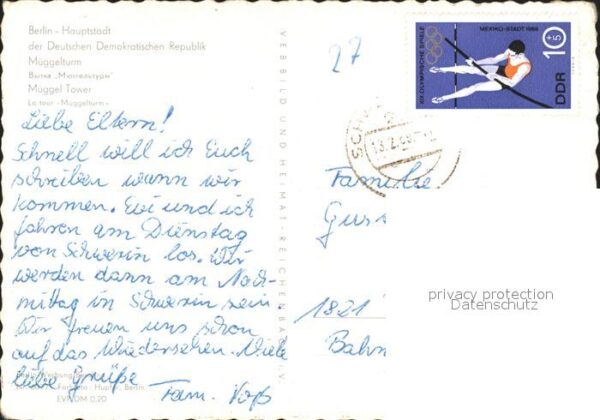 Berlin - Hauptstadt
der Deutschen Demokratischen Republik
Müggelturm
Müggel Tower
La tour -Müggelturm-
Liebe Eltern!
Schnell will ich Euch
schreiben wann wir
kommen. Evi und ich
fahren am Dienstag
von Schwerin los. Wir
werden dann am Nach-
mittag in Schwerin sein.
Wir freuen uns schon
auf das Wiedersehen. Viele
liebe Grüße
Fam. Voß
EVP DM 0,20
VEB BILD UND HEIMAT - REICHENBACH I. V.
27
XIX. OLYMPISCHE SPIELE
MEXIKO-STADT 1968
10+5
DDR
Familie
1821
Bahn
privacy protection
Datenschutz